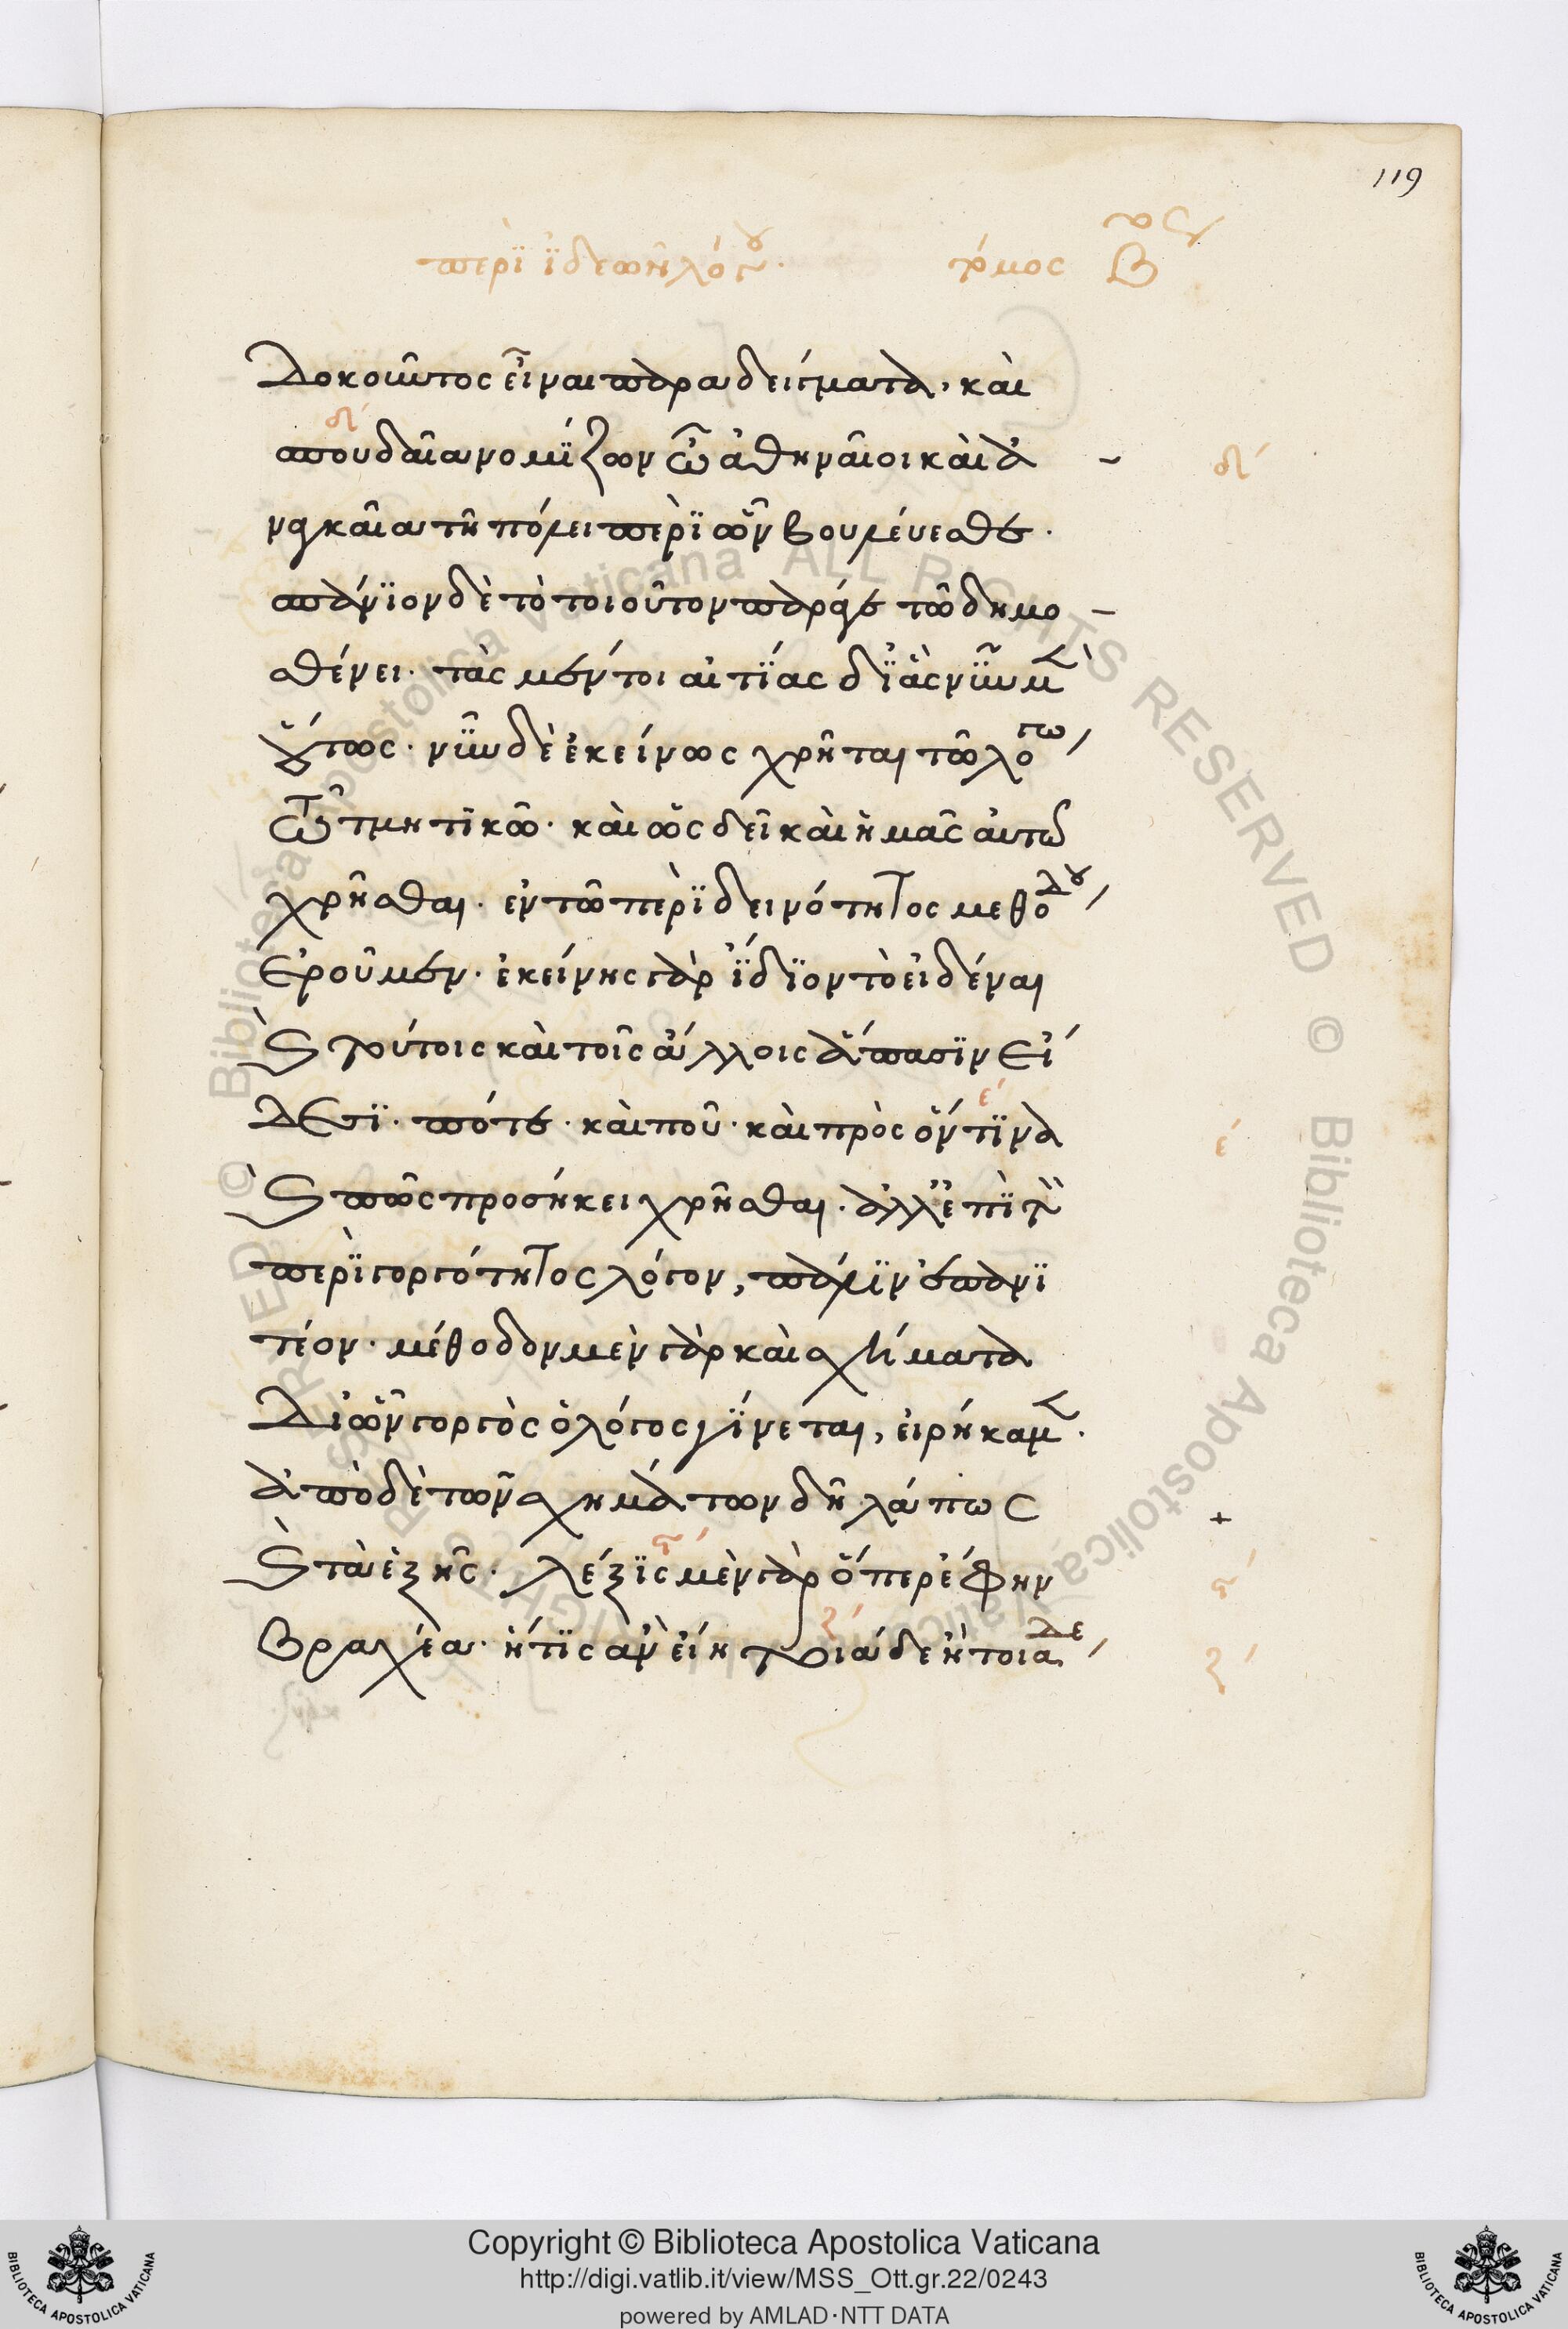 119
περὶ ἰδεῶν λόγου. τόμος Β
δοκοῦντος εἶναι παραδείγματα, καὶ
σπουδαῖα νομίζων ὦ ἀθηναῖοι καὶ ἀ
ναγκαῖα τῆ πόλει περὶ ὧν βουλεύεσθε.
σπάνιον δὲ τὸ τοιοῦτον παρά γε τῶ δημο
σθένει. τὰς μέντοι αἰτίας δι' ἃς νῦν μὲν
οὕτως. νῦν δὲ ἐκείνως χρῆται τῶ λόγω
τῶ τμητικῶ. καὶ ὡς δεῖ καὶ ἡμᾶς αὐτῶ
χρῆσθαι. ἐν τῶ περὶ δεινότητος μεθόδου
ἐροῦμεν. ἐκείνης γὰρ ἴδιον τὸ εἰδέναι
καὶ τούτοις καὶ τοῖς ἄλλοις ἅπασιν εἰ
δεῖ τι. πότε. καὶ ποῦ. καὶ πρὸς ὅντινα
καὶ πῶς προσήκει χρῆσθαι. ἀλλ' ἐπὶ τὸν
περὶ γοργότητος λόγον, πάλιν ἐπανι
τέον. μέθοδον μὲν γὰρ καὶ σχήματα
δι' ὧν γοργὸς ὁ λόγος γίνεται, εἰρήκαμεν.
ἀπὸ δὲ τῶν σχημάτων δῆλά πως
καὶ τὰ ἑξῆς. λέξις μὲν γὰρ ὅπερ ἔφην
βραχέα. ἥτις ἂν εἴη τοιάδε ἢ τοιάδε
δ´
ε´
ϛ´
ζ´
Copyright © Biblioteca Apostolica Vaticana
http://digi.vatlib.it/view/MSS_Ott.gr.22/0243
powered by AMLAD·NTT DATA
BIBLIOTECA APOSTOLICA VATICANA
BIBLIOTECA APOSTOLICA VATICANA